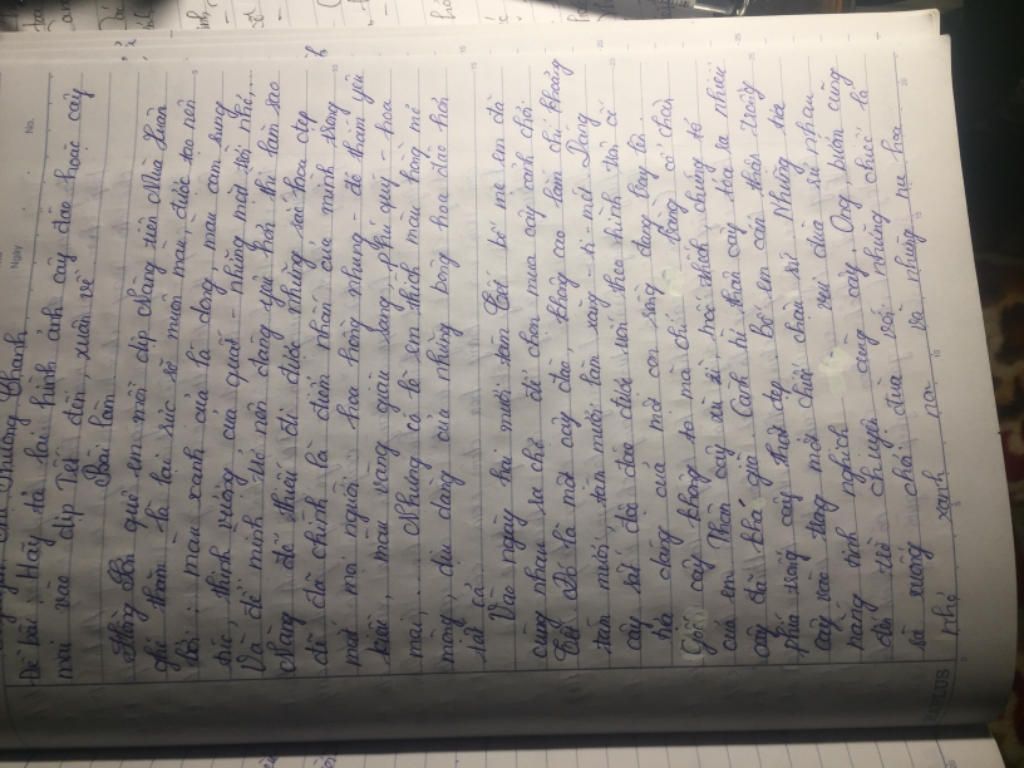 Đề bài: Hãy tả lại hình ảnh cây đào hoặc cây
mai vào dịp Tết đến, xuân về
Bài làm
Hằng quê em mỗi dịp nàng tiên Mùa Xuân
ghé thăm thì lại rực rỡ muôn màu, được tạo nên
bởi: màu xanh của lá dong, màu cam sung
túc, thịnh vượng của quả quất - những một thôi nhé,...
Và để mình trở nên đáng yêu hơn thì làm sao
Nàng để thiếu đi được những sắc hoa đẹp
đẽ đã chính là điểm nhấn của mình trong
mắt mọi người: hoa hồng nhung - đỏ thắm yêu
kiều, màu vàng giàu sang, phú quý - hoa
mai,... Nhưng có lẽ em thích màu hồng mê
mộng, dịu dàng của những bông hoa đào hơn
tất cả.
Vào ngày hai mươi tám Tết bố mẹ em đã
cùng nhau ra chợ để chọn mua cây cảnh chơi
Tết. Đó là một cây đào, thông cao tầm chừng khoảng
tám mươi, tám mươi lăm xăng-ti-mét. Dáng
cây thì đã được uốn theo hình
dáng của một con rồng đang bay lên
cây không to mà chỉ bằng cổ chân
của em. Thân cây xù xì, hơi thô, chứng tỏ
cây đã khá già. Cành thì thân cây tỏa ra nhiều
phía trông cây thật đẹp. Bố em cẩn thận trồng
cây vào trong một chiếc chậu sứ. Những tia
nắng tinh nghịch cũng vui đùa với nhau
đến trò chuyện cùng cây. Ong, bướm cũng
sà xuống chơi đùa với những chiếc lá
nhỏ xanh non và những nụ hoa
HAPLUS
Ngày
No.